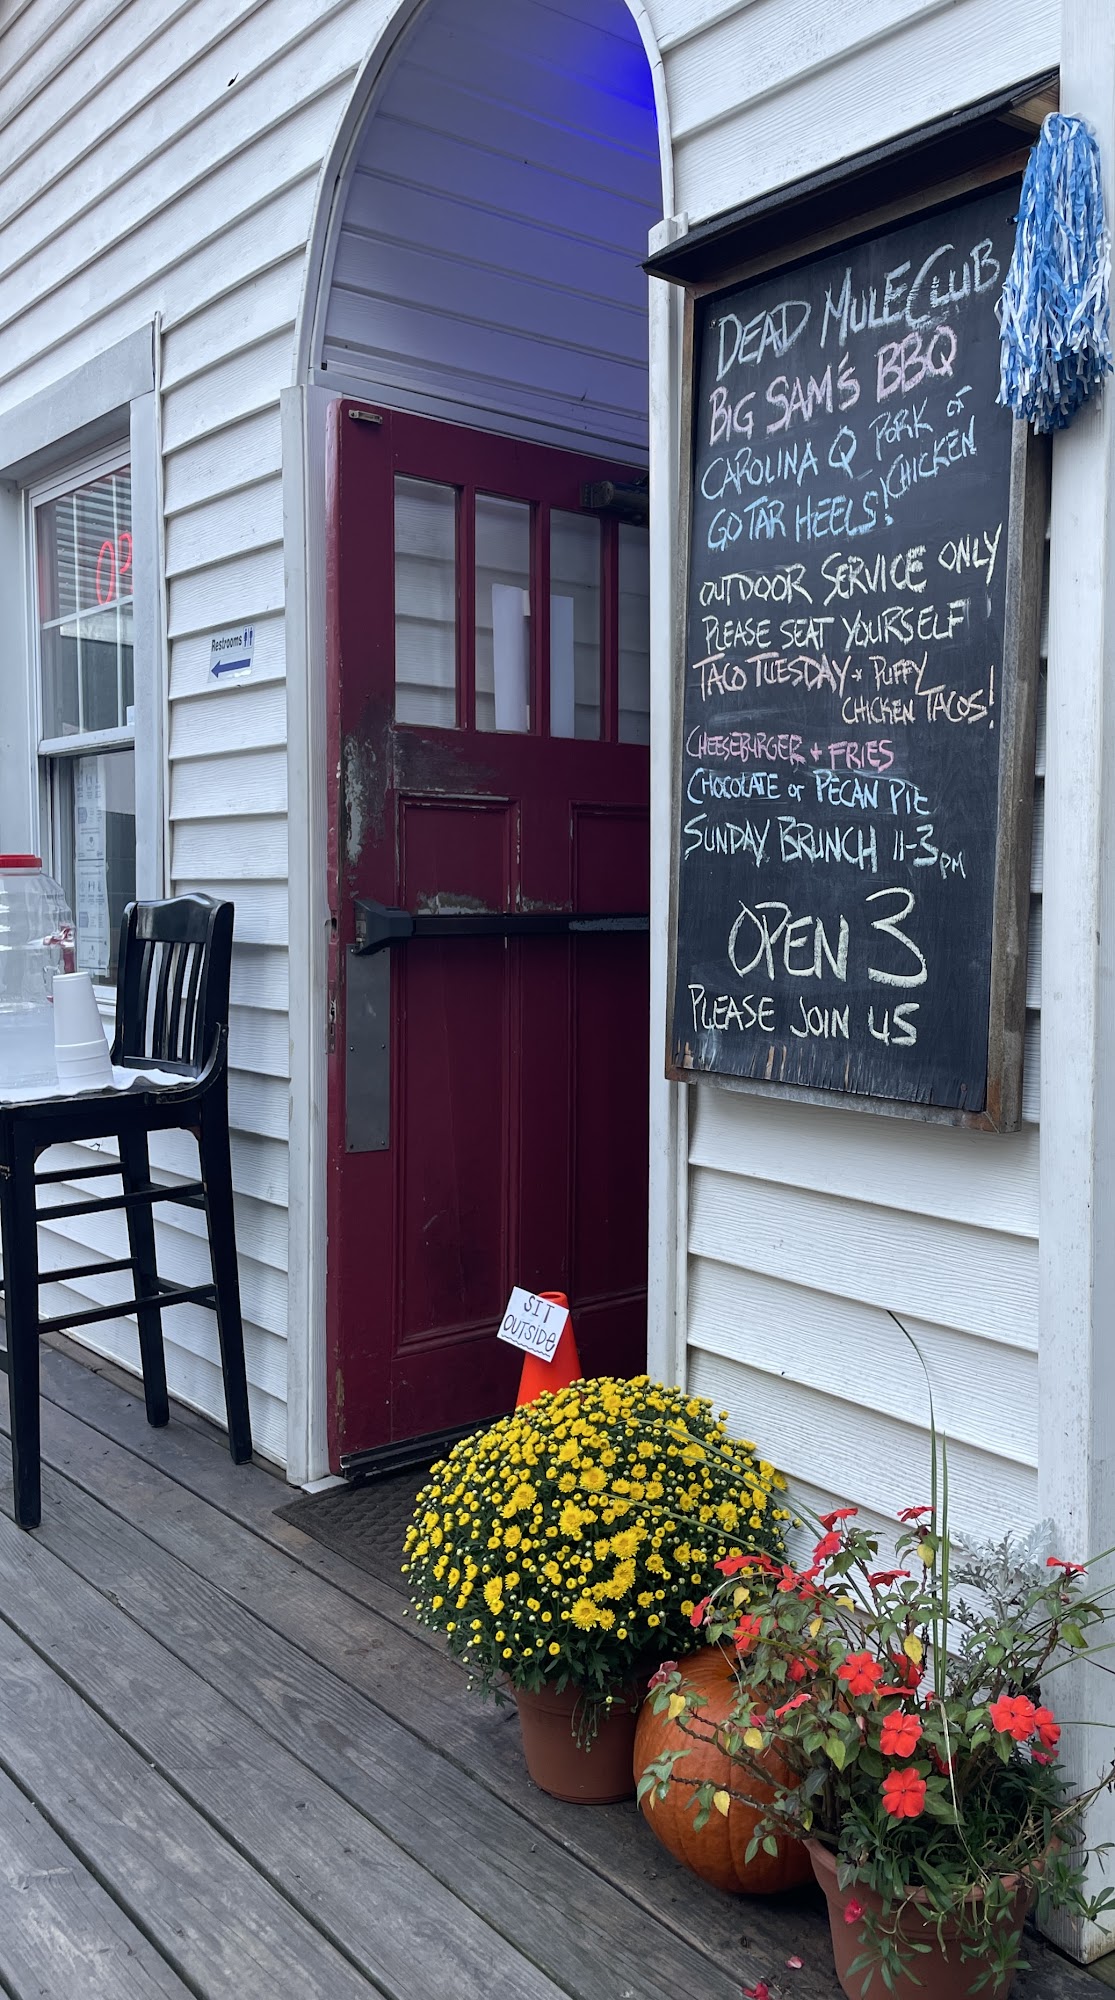 DEAD MULE CLUB
BIG SAM'S BBQ
CAROLINA Q PORK or
CHICKEN
GO TAR HEELS!
OUTDOOR SERVICE ONLY
PLEASE SEAT YOURSELF
TACO TUESDAY + PUFFY
CHICKEN TACOS!
CHEESEBURGER + FRIES
CHOCOLATE or PECAN PIE
SUNDAY BRUNCH 11-3PM
OPEN 3
PLEASE JOIN US
Restrooms
SIT
OUTSIDE